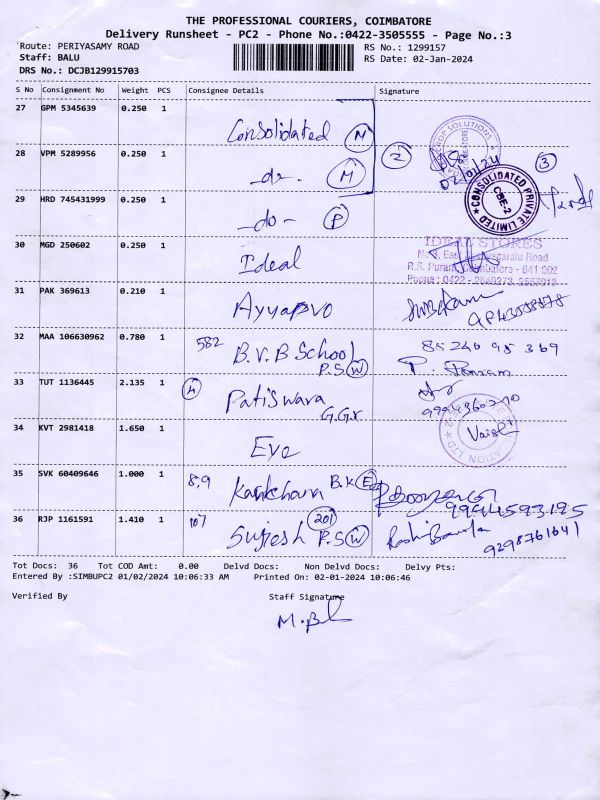 THE PROFESSIONAL COURIERS, COIMBATORE
Delivery Runsheet - PC2 - Phone No.:0422-3505555 - Page No.:3
Route: PERIYASAMY ROAD
RS No.: 1299157
Staff: BALU
RS Date: 02-Jan-2024
DRS No.: DCJB129915703
S No Consignment No Weight PCS Consignee Details Signature
27 GPM 5345639 0.250 1
Consolidated N
2
3
28 VPM 5289956 0.250 1
-do- M
02/01/24
CONSOLIDATED PRIVATE LIMITED
CBE-2
29 HRD 745431999 0.250 1
-do- P
30 MGD 250602 0.250 1
Ideal
IDEAL STORES
R.S. Puram, Coimbatore - 641 002
31 PAK 369613 0.210 1
Ayyapvo
32 MAA 106630962 0.780 1
582 B.V.B School
P.S W
33 TUT 1136445 2.135 1
4 Patiswara
G.G.r
34 KVT 2981418 1.650 1
Eve
35 SVK 60409646 1.000 1
8,9 B.K E
9944593195
36 RJP 1161591 1.410 1
107 Sujesh 201 P.S W
Tot Docs: 36 Tot COD Amt: 0.00 Delvd Docs: Non Delvd Docs: Delvy Pts:
Entered By :SIMBUPC2 01/02/2024 10:06:33 AM Printed On: 02-01-2024 10:06:46
Verified By Staff Signature